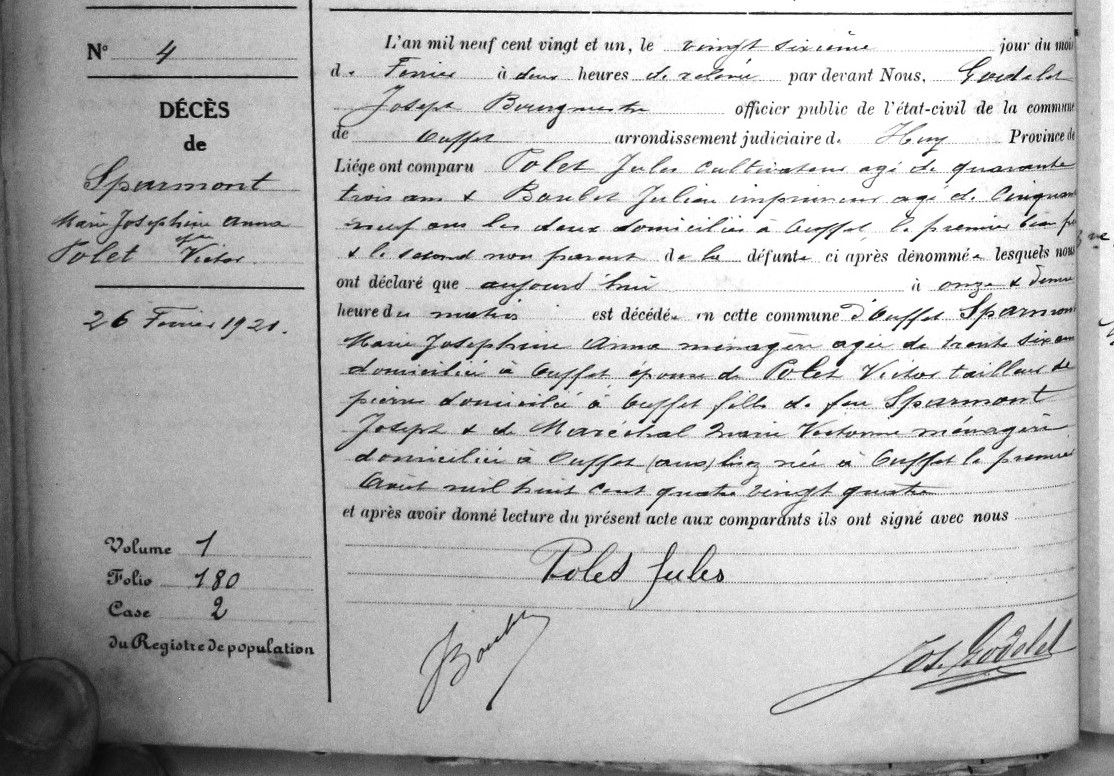 N° 4
DÉCÈS
de
Sparmont
Marie Josephine Anna
épse
Polet Victor.
26 Fevrier 1921.
Volume 1
Folio 180
Case 2
du Registre de population
L'an mil neuf cent vingt et un, le vingt sixième jour du mois
de Fevrier à deux heures de relevée par devant Nous, Godelet
Joseph Bourgmestre officier public de l'état-civil de la commune
de Ouffet arrondissement judiciaire de Huy Province de
Liége ont comparu Polet Jules cultivateur agé de quarante
trois ans & Boulet Julien imprimeur agé de cinquante
neuf ans les deux domiciliés à Ouffet, le premier beau frère
& le second non parent de la défunte ci après dénommée lesquels nous
ont déclaré que aujourd'hui à onze & demie
heure du matin est décédée en cette commune d'Ouffet Sparmont
Marie Josephine Anna ménagère agée de trente six ans
domiciliée à Ouffet, épouse de Polet Victor tailleur de
pierre domicilié à Ouffet fille de feu Sparmont
Joseph & de Maréchal Marie Victorine ménagère
domiciliée à Ouffet née à Ouffet le premier
Août mil huit cent quatre vingt quatre
et après avoir donné lecture du présent acte aux comparants ils ont signé avec nous
Polet Jules
Jos. Godelet